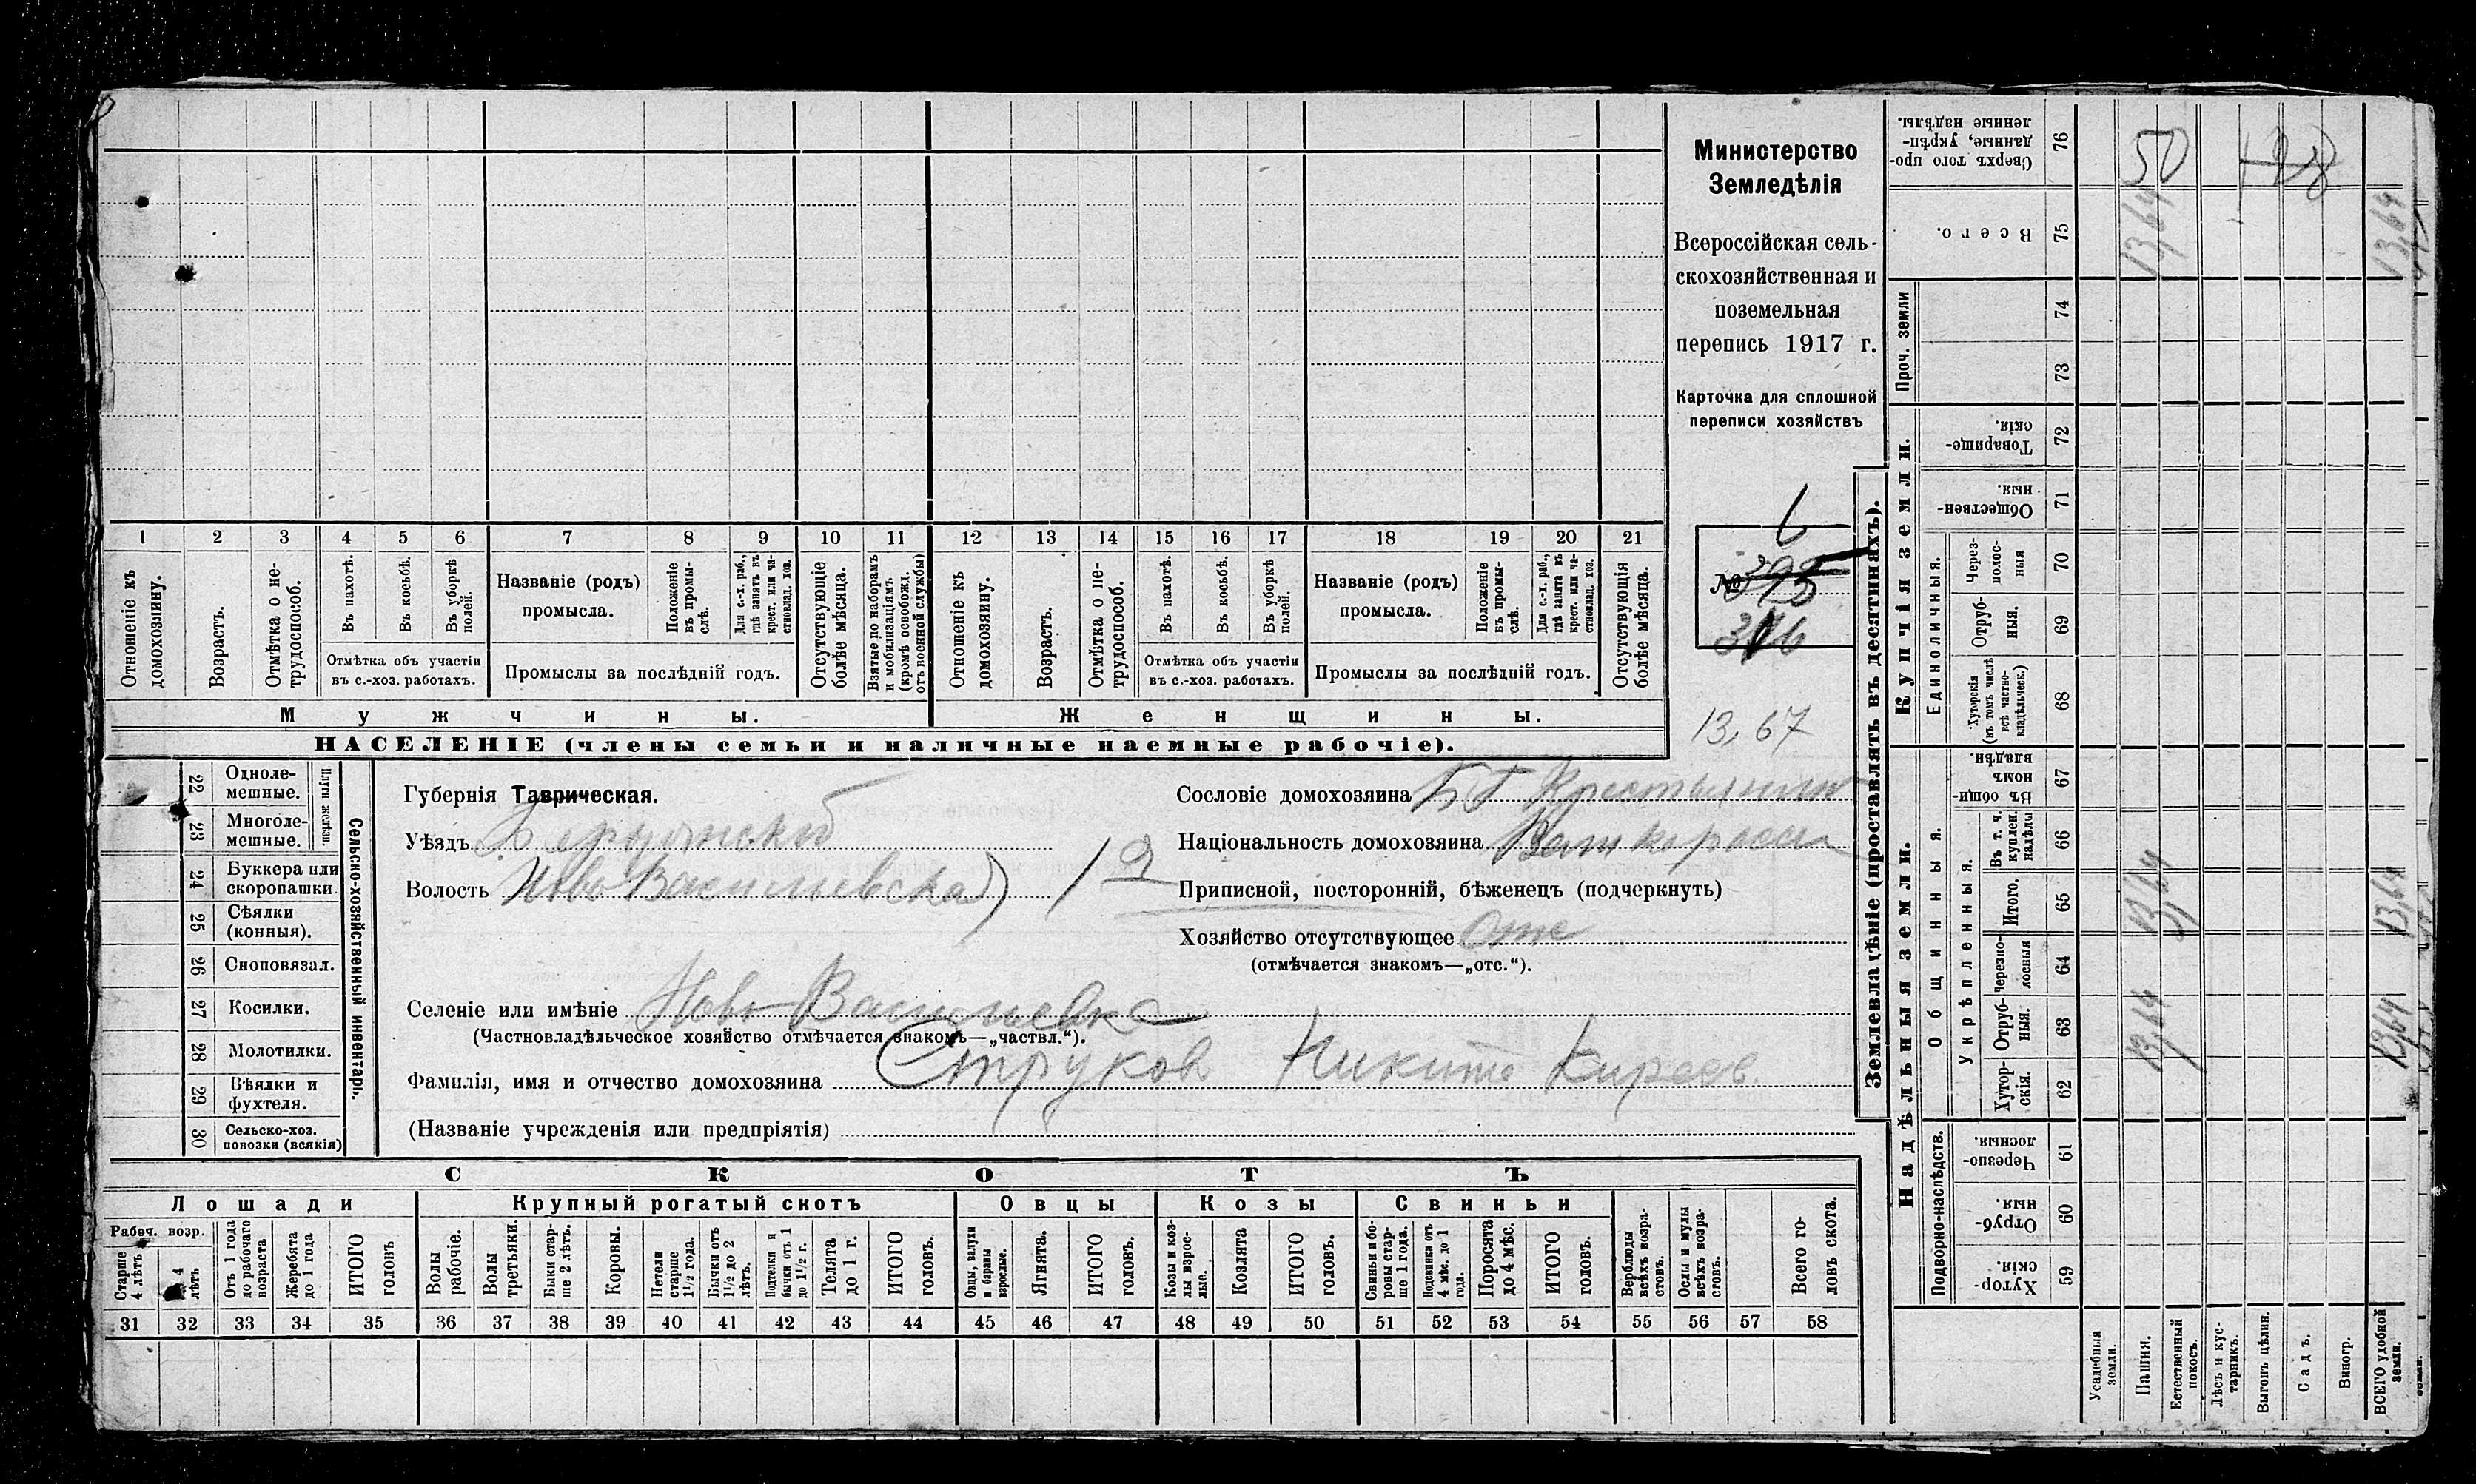 Министерство
Земледѣлія
Всероссійская сель-
скохозяйственная и
поземельная
перепись 1917 г.
Карточка для сплошной
переписи хозяйствъ
6
№ 395
13,67
1 2 3 4 5 6 7 8 9 10 11 12 13 14 15 16 17 18 19 20 21
Отношеніе къ домохозяину.
Возрастъ.
Отмѣтка о не-трудоспособ.
Въ пахотѣ.
Въ косьбѣ.
Въ уборкѣ полей.
Отмѣтка объ участіи
въ с.-хоз. работахъ.
Названіе (родъ)
промысла.
Положеніе въ промы-слѣ.
Для с.-х. раб., гдѣ занятъ въ крест. или ча-стновлад. хоз.
Промыслы за послѣдній годъ.
Отсутствующіе болѣе мѣсяца.
Взятые по наборамъ и мобилизаціямъ (кромѣ освобожд. отъ военной службы)
Отношеніе къ домохозяину.
Возрастъ.
Отмѣтка о не-трудоспособ.
Въ пахотѣ.
Въ косьбѣ.
Въ уборкѣ полей.
Отмѣтка объ участіи
въ с.-хоз. работахъ.
Названіе (родъ)
промысла.
Положеніе въ промы-слѣ.
Для с.-х. раб., гдѣ занята въ крест. или ча-стновлад. хоз.
Промыслы за послѣдній годъ.
Отсутствующія болѣе мѣсяца.
Мужчины.
Женщины.
НАСЕЛЕНІЕ (члены семьи и наличные наемные рабочіе).
22 Одноле-мешные.
23 Многоле-мешные.
Плуги желѣзн.
24 Буккера или скоропашки.
25 Сѣялки (конныя).
26 Сноповязал.
27 Косилки.
28 Молотилки.
29 Вѣялки и фухтеля.
30 Сельско-хоз. повозки (всякія)
Сельско-хозяйственный инвентарь.
Губернія Таврическая.
Уѣздъ Бердянскій
Волость Ново Васильевская
Сословіе домохозяина Крестьянинъ
Національность домохозяина Великороссъ
Приписной, посторонній, бѣженецъ (подчеркнуть)
Хозяйство отсутствующее Отс
(отмѣчается знакомъ—„отс.“).
Селеніе или имѣніе Ново-Васильевка
(Частновладѣльческое хозяйство отмѣчается знакомъ—„частвл.“).
Фамилія, имя и отчество домохозяина Струков Никита Киреев.
(Названіе учрежденія или предпріятія)
СКОТЪ
Лошади
Крупный рогатый скотъ
Овцы
Козы
Свиньи
Рабоч. возр.
Старше 4 лѣтъ
4 лѣтъ
Отъ 1 года до рабочаго возраста
Жеребята до 1 года
ИТОГО головъ
Волы рабочіе.
Волы третьяки.
Быки стар-ше 2 лѣтъ.
Коровы.
Нетели старше 1½ года.
Бычки отъ 1½ до 2 лѣтъ.
Подтелки и бычки отъ 1 до 1½ г.
Телята до 1 г.
ИТОГО головъ.
Овцы, валухи и бараны взрослые.
Ягнята.
ИТОГО головъ.
Козы и коз-лы взрос-лые.
Козлята
ИТОГО головъ.
Свиньи и бо-ровы стар-ше 1 года.
Подсвинки отъ 4 мѣс. до 1 года.
Поросята до 4 мѣс.
ИТОГО головъ.
Верблюды всѣхъ возра-стовъ.
Ослы и мулы всѣхъ возра-стовъ.
Всего го-ловъ скота.
31 32 33 34 35 36 37 38 39 40 41 42 43 44 45 46 47 48 49 50 51 52 53 54 55 56 57 58
Землевладѣніе (проставлять въ десятинахъ).
Купчія земли.
Надѣльныя земли.
Сверхъ того про-данные, укрѣп-ленные надѣлы. 76
50
Всего. 75
13,64
13,64
Проч. земли
74
73
Товарище-скія. 72
Обществен-ныя. 71
Единоличныя.
Через-полос-ныя 70
Отруб-ныя. 69
Хуторскія (въ томъ числѣ всѣ частно-владѣльческ.) 68
Въ общин-номъ владѣн. 67
Общинныя.
Укрѣпленныя.
Въ т. ч. куплен. надѣлы 66
Итого. 65
13,64
13,64
Черезпо-лосныя 64
Отруб-ныя. 63
13,64
13,64
Хутор-скія. 62
Подворно-наслѣдств.
Черезпо-лосныя. 61
Отруб-ныя. 60
Хутор-скія. 59
Усадебныя земли.
Пашня.
Естественный покосъ.
Лѣсъ и кус-тарникъ.
Выгонъ цѣлин.
Садъ.
Виногр.
ВСЕГО удобной земли.